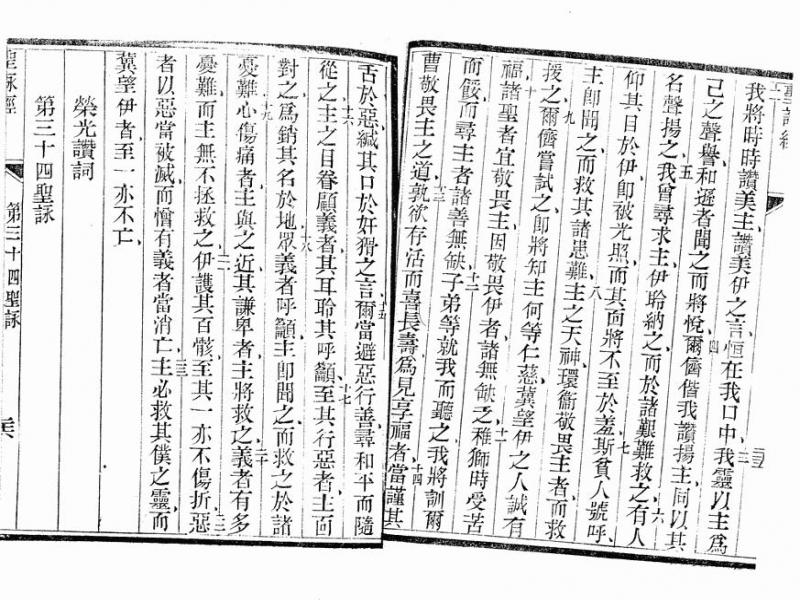 我將時時讚美主讚美伊之言恒在我口中我靈以主爲
三
己之聲譽和遜者聞之而將悅爾儕偕我讚揚主同以其
四
名聲揚之我曾尋求主伊聆納之而於諸艱難救之有人
五
六
仰其目於伊卽被光照而其面將不至於羞斯貧人號呼
七
主卽聞之而救其諸患難主之天神環衞敬畏主者而救
八
援之爾儕嘗試之卽將知主何等仁慈冀望伊之人誠有
九
福諸聖者宜敬畏主因敬畏伊者諸無缺乏稚獅時受苦
十
而餒而尋主者諸善無缺子弟等就我而聽之我將訓爾
十二
曹敬畏主之道孰欲存活而喜長壽爲見享福者當謹其
十四
舌於惡緘其口於奸猾之言爾當避惡行善尋和平而隨
十五
從之主之目眷顧義者其耳聆其呼籲至其行惡者主面
十六
十七
對之爲銷其名於地眾義者呼籲主卽聞之而救之於諸
十八
憂難心傷痛者主與之近其謙卑者主將救之義者有多
十九
二十
憂難而主無不拯救之伊護其百骸至其一亦不傷折惡
者以惡當被滅而憎有義者當消亡主必救其僕之靈而
冀望伊者至一亦不亡
榮光讚詞
第三十四聖詠
聖詠經
第三十四聖詠